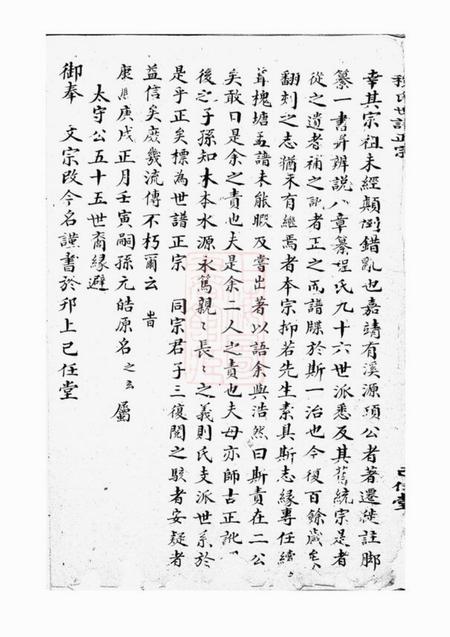 程氏世譜正宗
幸其宗祖未經顛倒錯亂也嘉靖有溪源項公者著遷徙註脚
纂一書并辨說八章纂程氏九十六世派悉及其舊統宗是者
從之遺者補之訛者正之而譜牒於斯一治也今復百餘歲矣
翻刻之志猶未有繼焉者本宗抑若先生素具斯志緣專任續
葺槐塘孟譜未能暇及嘗出著以語余與浩然曰斯責在二公
矣敢曰是余之責也夫是余二人之責也夫毋亦師古正訛
後之子孫知木本水源永篤親親長長之義則氏支派世系於
是乎正矣標為世譜正宗 同宗君子三復閱之駭者安疑者
益信矣庶幾流傳不朽爾云 旹
康熙庚戌正月壬寅嗣孫元皓原名之玄屬
太守公五十五世裔緣避
御奉 文宗改今名謹書於邗上己任堂
己任堂